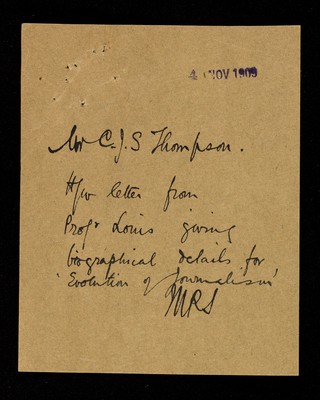 4 NOV 1909
Mr C.J.S Thompson.
H/w letter from
Profr Louis giving
biographical details for
'Evolution of Journalism'
MRS